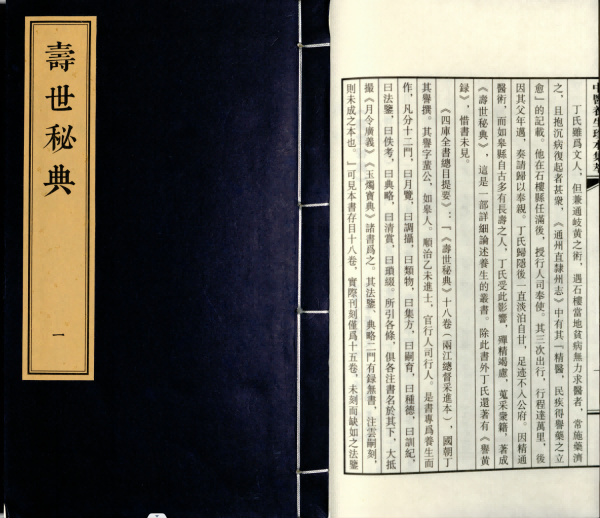 壽世秘典
一
中醫養生珍本集萃
丁氏雖爲文人，但兼通岐黃之術，遇石樓當地貧病無力求醫者，常施藥濟
之，且抱沉病復起者甚衆，《通州直隸州志》中有其「精醫，民疾得譽藥之立
愈」的記載。他在石樓縣任滿後，授行人司奉使。其三次出行，行程達萬里，後
因其父年邁，奏請歸以奉親。丁氏歸隱後一直淡泊自甘，足迹不入公府。因精通
醫術，而如皋縣自古多有長壽之人，丁氏受此影響，殫精竭慮，蒐采衆籍，著成
《壽世秘典》，這是一部詳細論述養生的叢書。除此書外丁氏還著有《譽黃
録》，惜書未見。
《四庫全書總目提要》：「《壽世秘典》十八卷（兩江總督采進本），國朝丁
其譽撰。其譽字蜚公，如皋人。順治乙未進士，官行人司行人。是書專爲養生而
作，凡分十二門，曰月覽，曰調攝，曰類物，曰集方，曰嗣育，曰種德，曰訓紀，
曰法鑒，曰佚考，曰典略，曰清賞，曰瑣綴。所引各條，俱各注書名於其下，大抵
撮《月令廣義》《玉燭寶典》諸書爲之。其法鑒、典略二門有録無書，注雲嗣刻，
則未成之本也。」可見本書存目十八卷，實際刊刻僅爲十五卷，未刻而缺如之法鑒